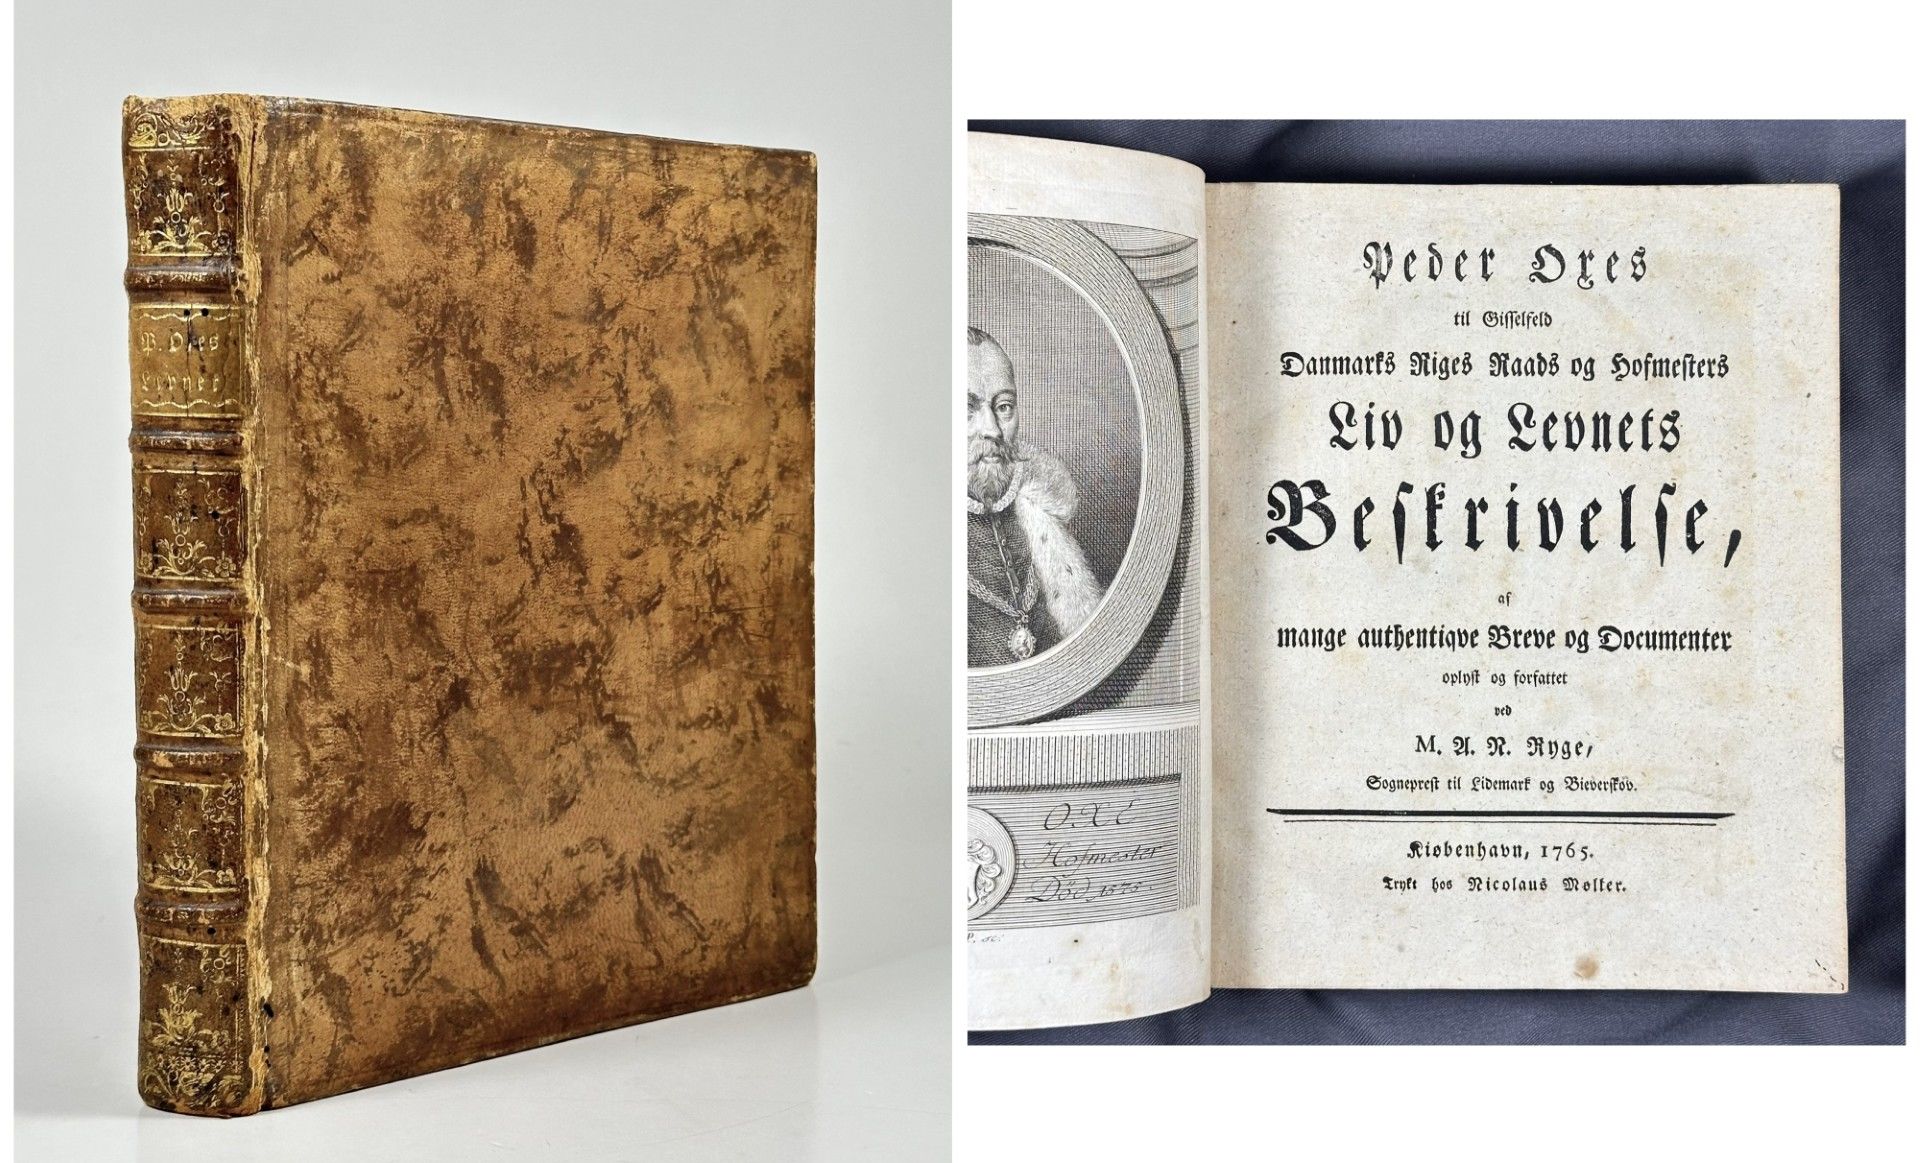 P. Oxes
Levnet
Peder Oxes
til Gisselfeld
Danmarks Riges Raads og Hofmesters
Liv og Levnets
Beskrivelse,
af
mange authentiqve Breve og Documenter
oplyst og forfattet
ved
M. A. N. Ryge,
Sogneprest til Lidemark og Bieverskov.
Kiøbenhavn, 1765.
Trykt hos Nicolaus Møller.
OXE
Hofmester
Död 1575.
P. sc: